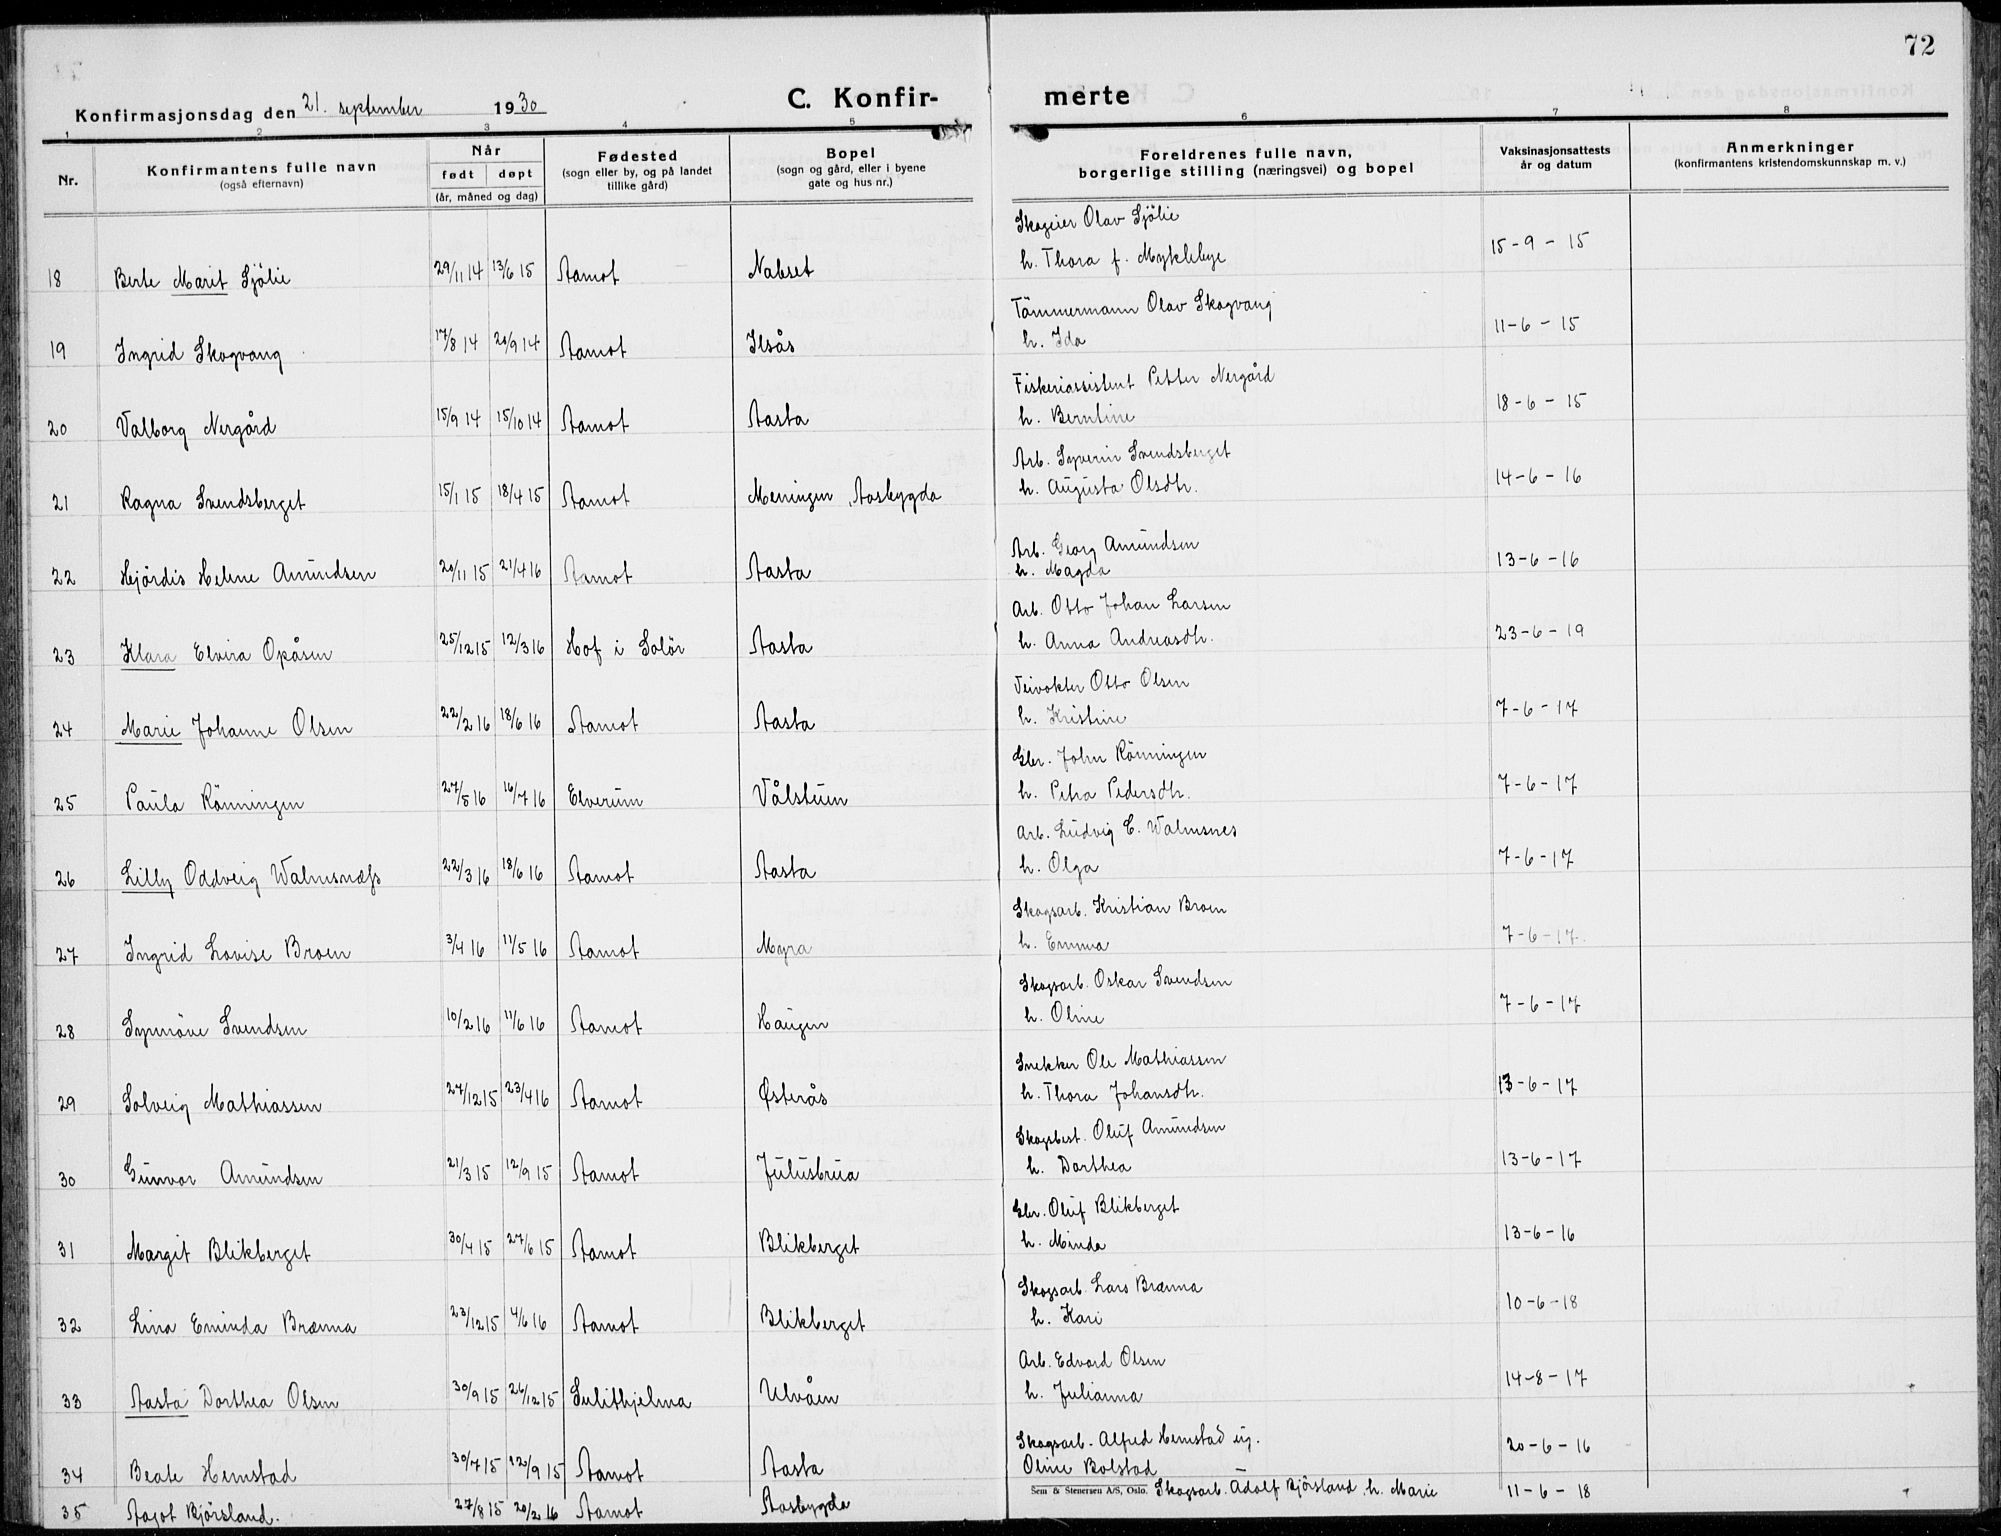 72
Konfirmasjonsdag den 21. september 1930
C. Konfir- merte
1 2 3 4 5 6 7 8
Nr. | Konfirmantens fulle navn (også efternavn) | Når født | døpt (år, måned og dag) | Fødested (sogn eller by, og på landet tillike gård) | Bopel (sogn og gård, eller i byene gate og hus nr.) | Foreldrenes fulle navn, borgerlige stilling (næringsvei) og bopel | Vaksinasjonsattests år og datum | Anmerkninger (konfirmantens kristendomskunnskap m. v.)
18 Berte Marit Sjölie 29/11 14 13/6 15 Aamot Nabset Skogeier Olav Sjölie h. Thora f. Myklebye 15-9-15
19 Ingrid Skogvang 17/8 14 20/9 14 Aamot Ilsås Tömmermann Olav Skogvang h. Ida 11-6-15
20 Valborg Nergård 15/9 14 15/10 14 Aamot Aasta Fiskeriassistent Petter Nergård h. Berntine 18-6-15
21 Ragna Svendsberget 15/1 15 18/4 15 Aamot Meningen, Aasbygda Arb. Syverin Svendsberget h. Augusta Olsdtr. 14-6-16
22 Hjördis Helene Amundsen 20/11 15 21/4 16 Aamot Aasta Arb. Georg Amundsen h. Magda 13-6-16
23 Klara Elvira Opåsen 25/12 15 12/3 16 Hof i Solör Aasta Arb. Otto Johan Larsen h. Anna Andreasdtr. 23-6-19
24 Marie Johanne Olsen 22/2 16 18/6 16 Aamot Aasta Veivokter Otto Olsen h. Kristine 7-6-17
25 Paula Rönningen 27/5 16 16/7 16 Elverum Vålstuen Gbr. John Rönningen h. Petra Pedersdtr. 7-6-17
26 Lilly Oddveig Walmsnæss 22/3 16 18/6 16 Aamot Aasta Arb. Ludvig E. Walmsnes h. Olga 7-6-17
27 Ingrid Lovise Broen 3/4 16 11/5 16 Aamot Myra Skogsarb. Kristian Broen h. Emma 7-6-17.
28 Synnöve Svendsen 10/2 16 11/6 16 Aamot Haugen Skogsarb. Oskar Svendsen h. Oline 7-6-17
29 Solveig Mathiassen 27/12 15 23/4 16 Aamot Østerås Snekker Ole Mathiassen h. Thora Johansdtr. 13-6-17
30 Gunvor Amundsen 21/3 15 12/9 15 Aamot Julusbrua Skogsbest. Oluf Amundsen h. Dorthea 13-6-17
31 Margit Blikberget 30/4 15 27/6 15 Aamot Blikberget Gbr. Oluf Blikberget h. Minda 13-6-16
32 Lina Eminda Brænna 23/12 15 4/6 16 Aamot Blikberget Skogsarb. Lars Brænna h. Kari 10-6-18
33 Aasta Dorthea Olsen 30/9 15 26/12 15 Sulithjelma Ulvåen Arb. Edvard Olsen h. Julianna 14-8-17
34 Beate Hemstad 30/7 15 12/9 15 Aamot Aasta Skogsarb. Alfred Hemstad ug. Oline Bolstad 20-6-16
Sem & Stenersen A/S, Oslo.
35 Aagot Björsland. 27/8 15 20/2 16 Aamot Aasbygda Skogsarb. Adolf Bjørsland, h. Marie 11-6-18